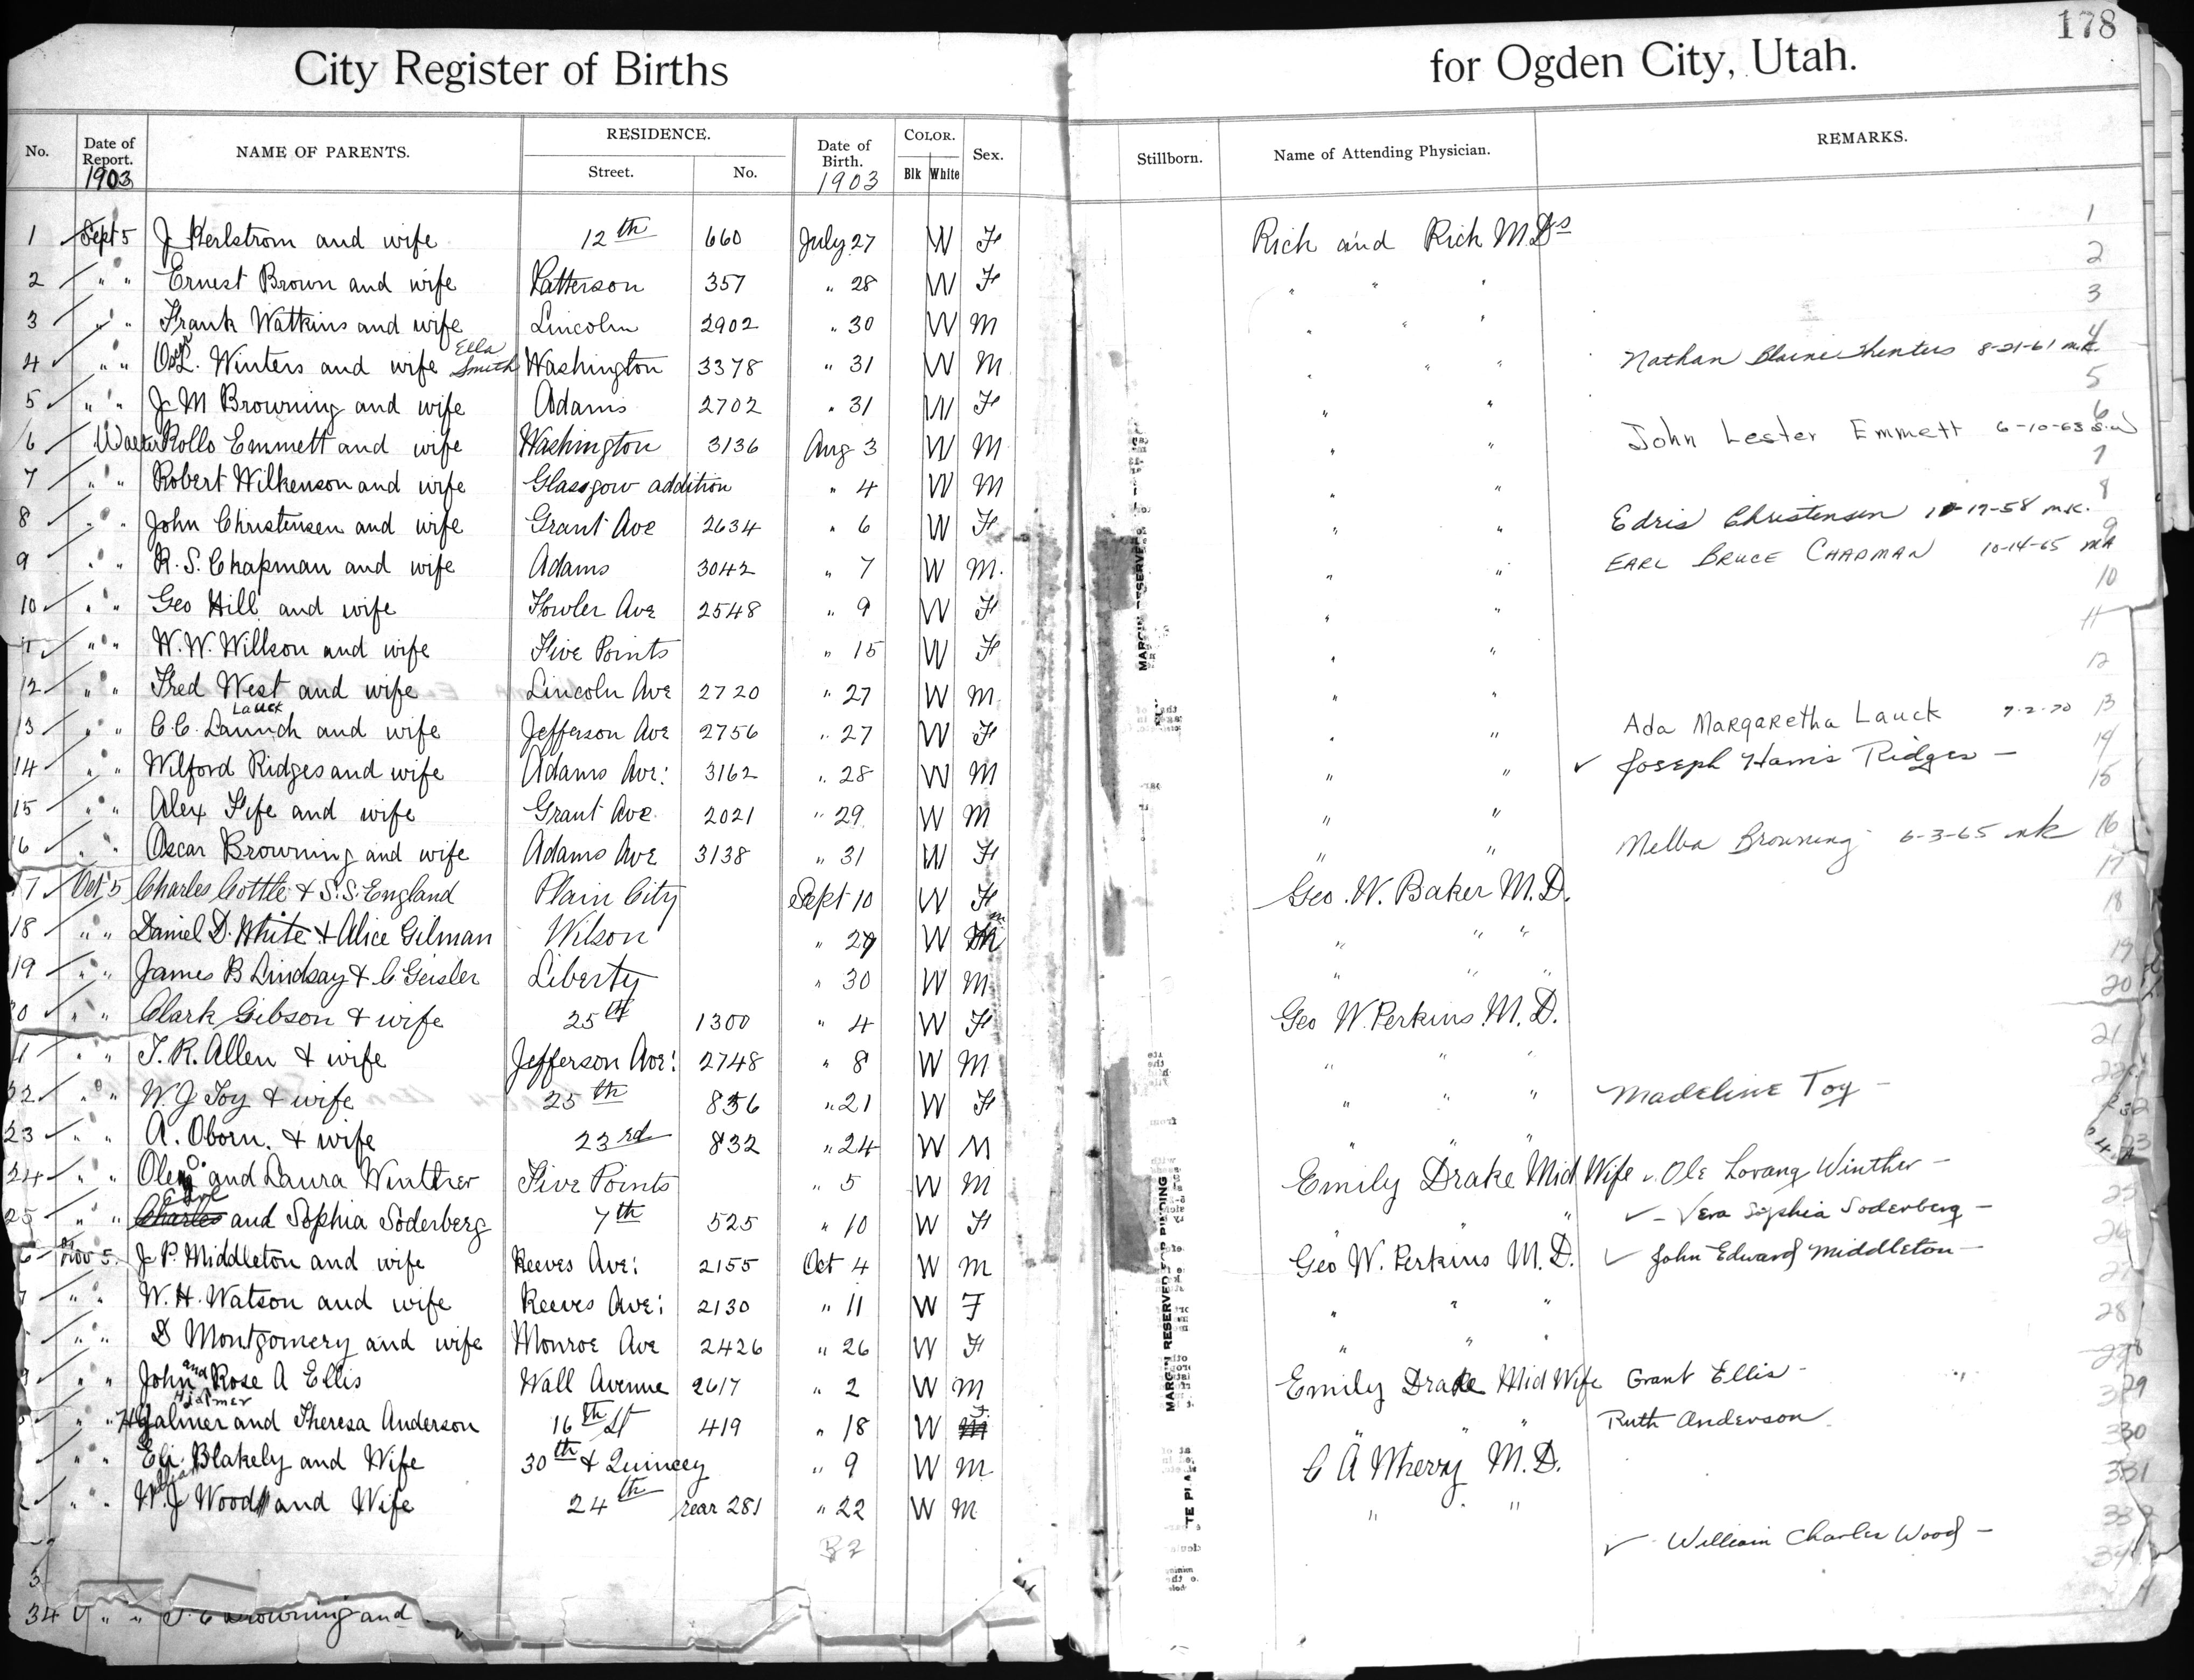 178
City Register of Births for Ogden City, Utah.
No. Date of Report. 1903 NAME OF PARENTS. RESIDENCE. Street. No. Date of Birth. 1903 COLOR. Blk White Sex. Stillborn. Name of Attending Physician. REMARKS.
1 Sept 5 J Kerlstrom and wife 12th 660 July 27 W F Rich and Rich M.Ds 1
2 " " Ernest Brown and wife Patterson 357 " 28 W F " " " 2
3 " " Frank Watkins and wife Lincoln 2902 " 30 W M " " " 3
4 " " L. Winters and wife Ella Smith Washington 3378 " 31 W M " " " Nathan Blaine 8-21-61 m.k. 4
5 " " J M Browning and wife Adams 2702 " 31 W F " " 5
6 Walter Rollo Emmett and wife Washington 3136 Aug 3 W M " " John Lester Emmett 6-10-63 6
7 " " Robert Wilkenson and wife Glassgow addition " 4 W M " " 7
8 " " John Christensen and wife Grant Ave 2634 " 6 W F " " Edris Christensen m.k. 8
9 " " R. S. Chapman and wife Adams 3042 " 7 W M. " " EARL BRUCE CHAPMAN 10-14-65 9
10 " " Geo Hill and wife Fowler Ave 2548 " 9 W F " " 10
11 " " W. W. Willson and wife Five Points " 15 W F " " 11
12 " " Fred West and wife Lincoln Ave 2720 " 27 W M " " 12
13 " " C. C. Launch Lauck and wife Jefferson Ave 2756 " 27 W F " " Ada Margaretha Lauck 7-2-70 13
14 " " Wilford Ridges and wife Adams Ave: 3162 " 28 W M " " ✓ Joseph Harris Ridges – 14
15 " " Alex Fife and wife Grant Ave. 2021 " 29 W M " " 15
16 " " Oscar Browning and wife Adams Ave 3138 " 31 W F " " Melba Browning 6-3-65 mk 16
17 Oct 5 Charles Cottle & S. S. England Plain City Sept 10 W F Geo. W. Baker M.D. 17
18 " " Daniel D. White & Alice Gilman Wilson " 29 W M " " " 18
19 " " James B Lindsay & C Geisler Liberty " 30 W M " " " 19
20 " " Clark Gibson & wife 25th 1300 " 4 W F Geo W. Perkins M.D. 20
" " T. R. Allen & wife Jefferson Ave: 2748 " 8 W M " " " 21
22 " " W. J Toy & wife 25th 836 " 21 W F " " " Madeline Toy –
23 " " A. Oborn. & wife 23rd 832 " 24 W M " " " 23
24 " " Ole and Laura Winther Five Points " 5 W M Emily Drake Mid Wife Ole Lovang Winther –
25 " " Charles Earl and Sophia Soderberg 7th 525 " 10 W F " " " ✓ – Vera Sophia Soderberg –
6 Nov 5. J. P. Middleton and wife Reeves Ave: 2155 Oct 4 W M Geo W. Perkins M.D. ✓ John Edward Middleton –
7 " " W. H. Watson and wife Reeves Ave: 2130 " 11 W F " " "
" " D Montgomery and wife Monroe Ave 2426 " 26 W F " " " 28
9 " " John and Rose A Ellis Wall Avenue 2617 " 2 W M Emily Drake Mid Wife Grant Ellis – 29
" " Hjalmer Hjalmer and Theresa Anderson 16th St 419 " 18 W F " " " Ruth Anderson 30
" " Eli Blakely and Wife 30th & Quincey " 9 W M C A Wherry M.D. 31
" " W. J Wood and Wife 24th rear 281 " 22 W M " " "
✓ William Charles Wood –
34 " " Browning and
MARGIN RESERVED FOR BINDING